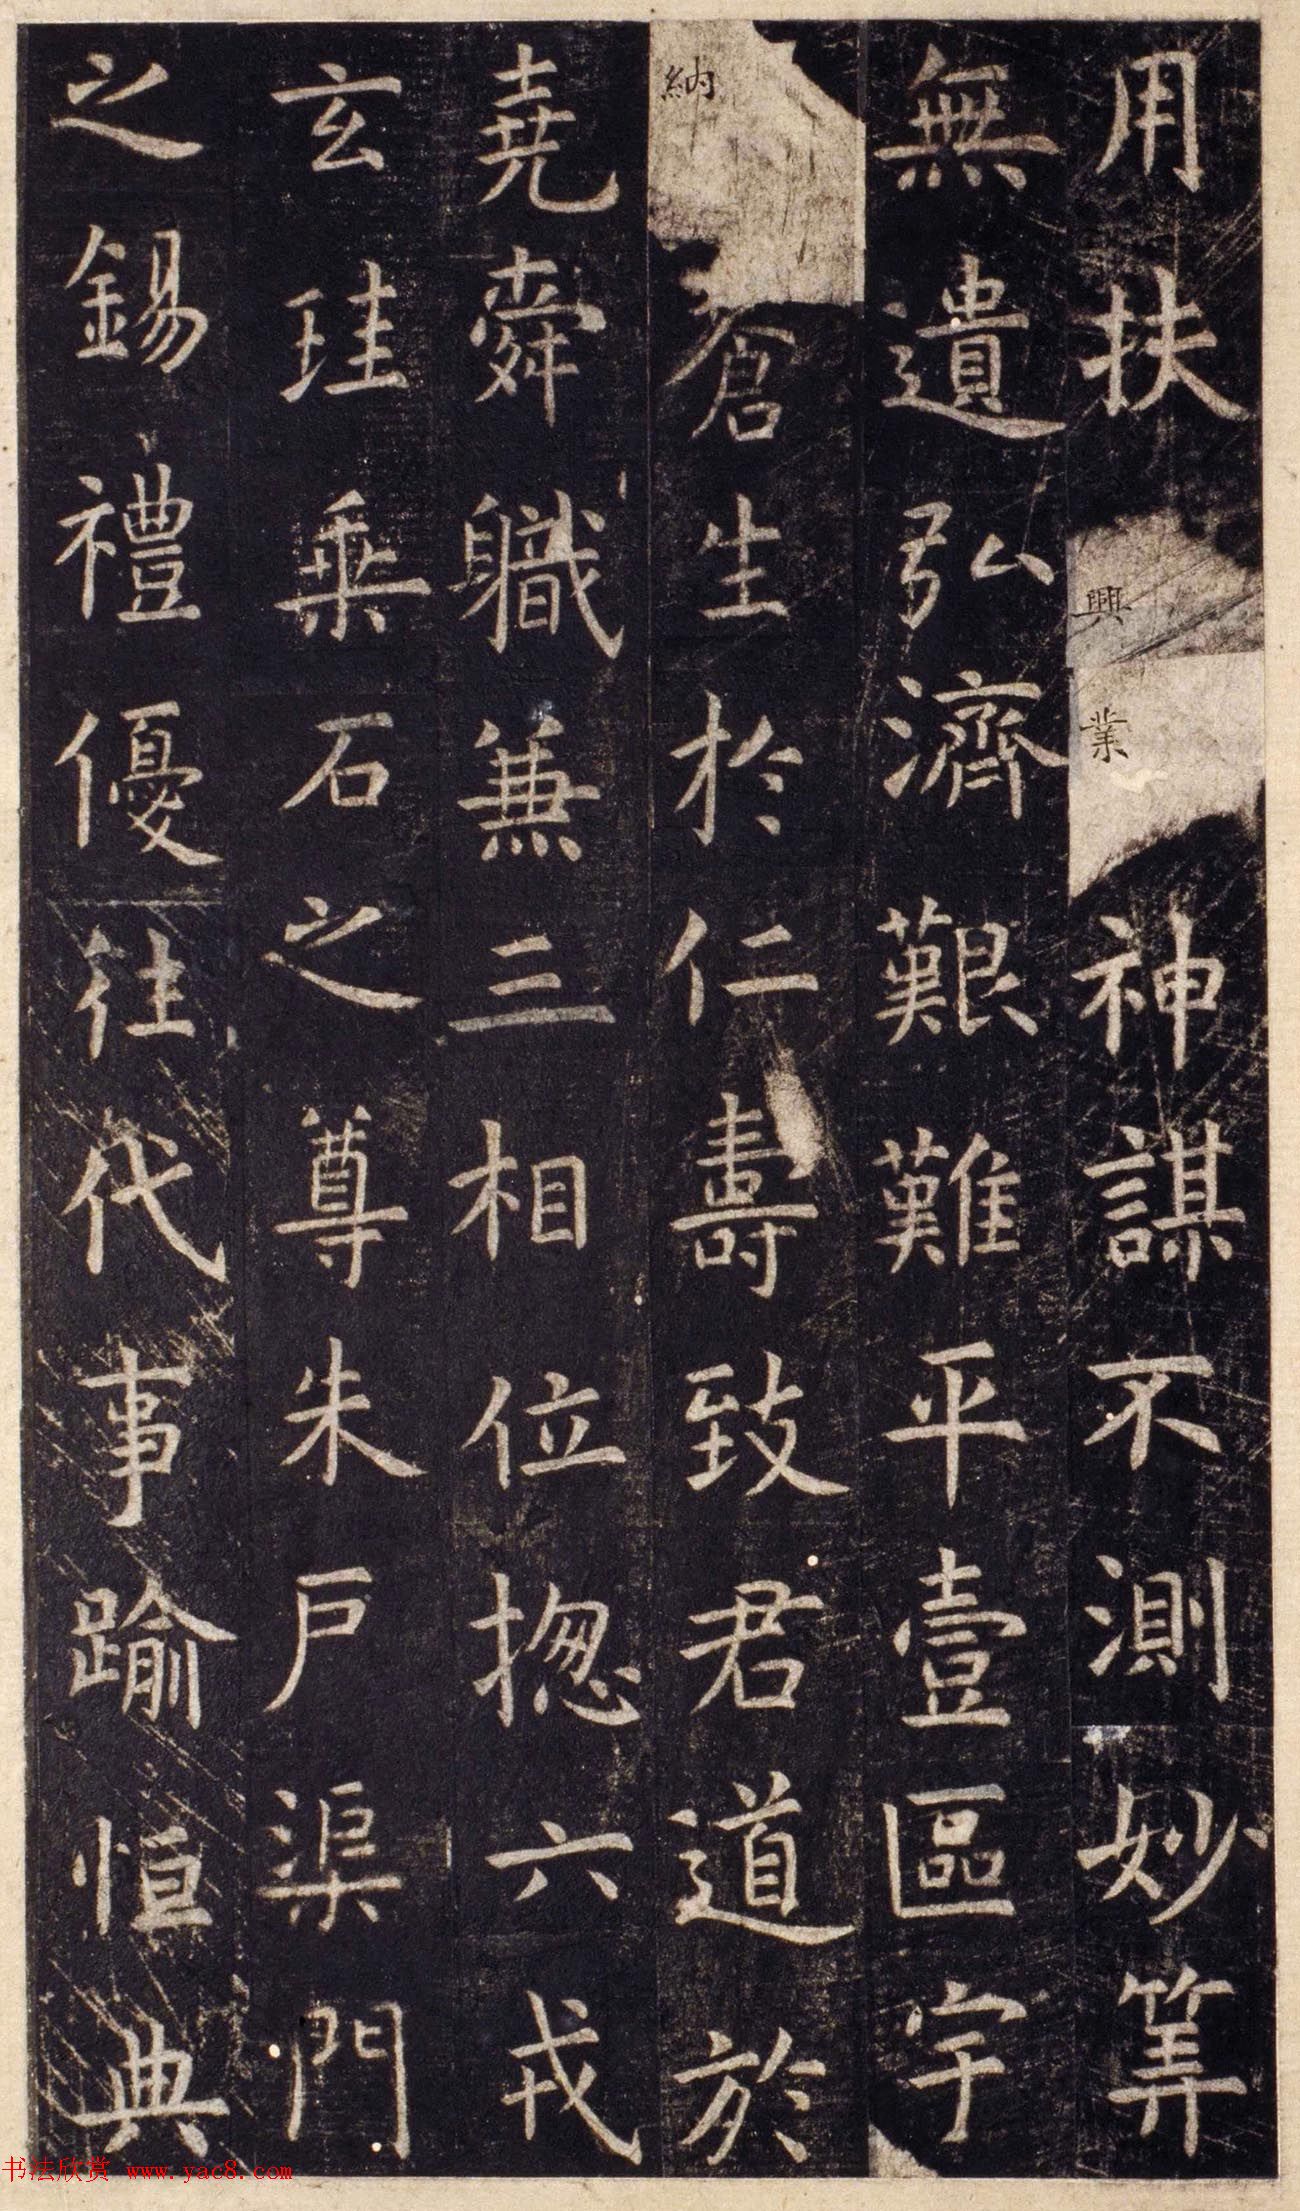 用扶興業神謀不測妙筭
無遺弘濟艱難平壹區宇
納蒼生於仁壽致君道於
堯舜職兼三相位揔六戎
玄珪乘石之尊朱戶渠門
之錫禮優往代事踰恒典
书法欣赏 www.yac8.com